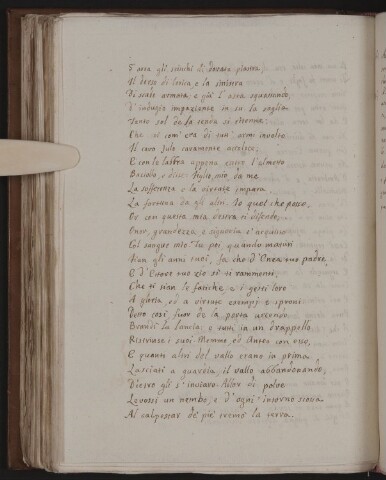 E avea gli stinchi di dorata piastra;
Il dorso di lorica e la sinistra
Di scudo armata, e già l'asta squassando,
D'indugio impaziente in su la soglia
Tanto sol de la tenda si ritenne
Che sì com'era di tutt'armi involto
Il caro Julo caramente accolse,
E con le labbra appena entro l'elmetto
Baciollo, e disse: Figlio mio, da me
La sofferenza e la virtute impara
La fortuna da gli altri. Io quel che posso,
Or con questa mia destra ti difendo;
Onor, grandezza e signoria t'acquisto
Col sangue mio. Tu poi, quando maturi
Fian gli anni tuoi, fa che d'Enea tuo padre,
E d'Ettore tuo zio si ti rammenti,
Che ti sian le fatiche e i gesti loro
A gloria, ed a virtute esempi e sproni.
Detto così, fuor de la porta uscendo
Brandì la lancia, e tutti in un drappello
Ristrinse i suoi. Memmo, ed Anteo con esso,
E quanti altri del vallo erano in prima
Lasciati a guardia, il vallo abbandonando,
Dietro gli s'inviaro. Allor di polve
Levossi un nembo, e d'ogni intorno scossa
Al calpestar de' piè tremò la terra.